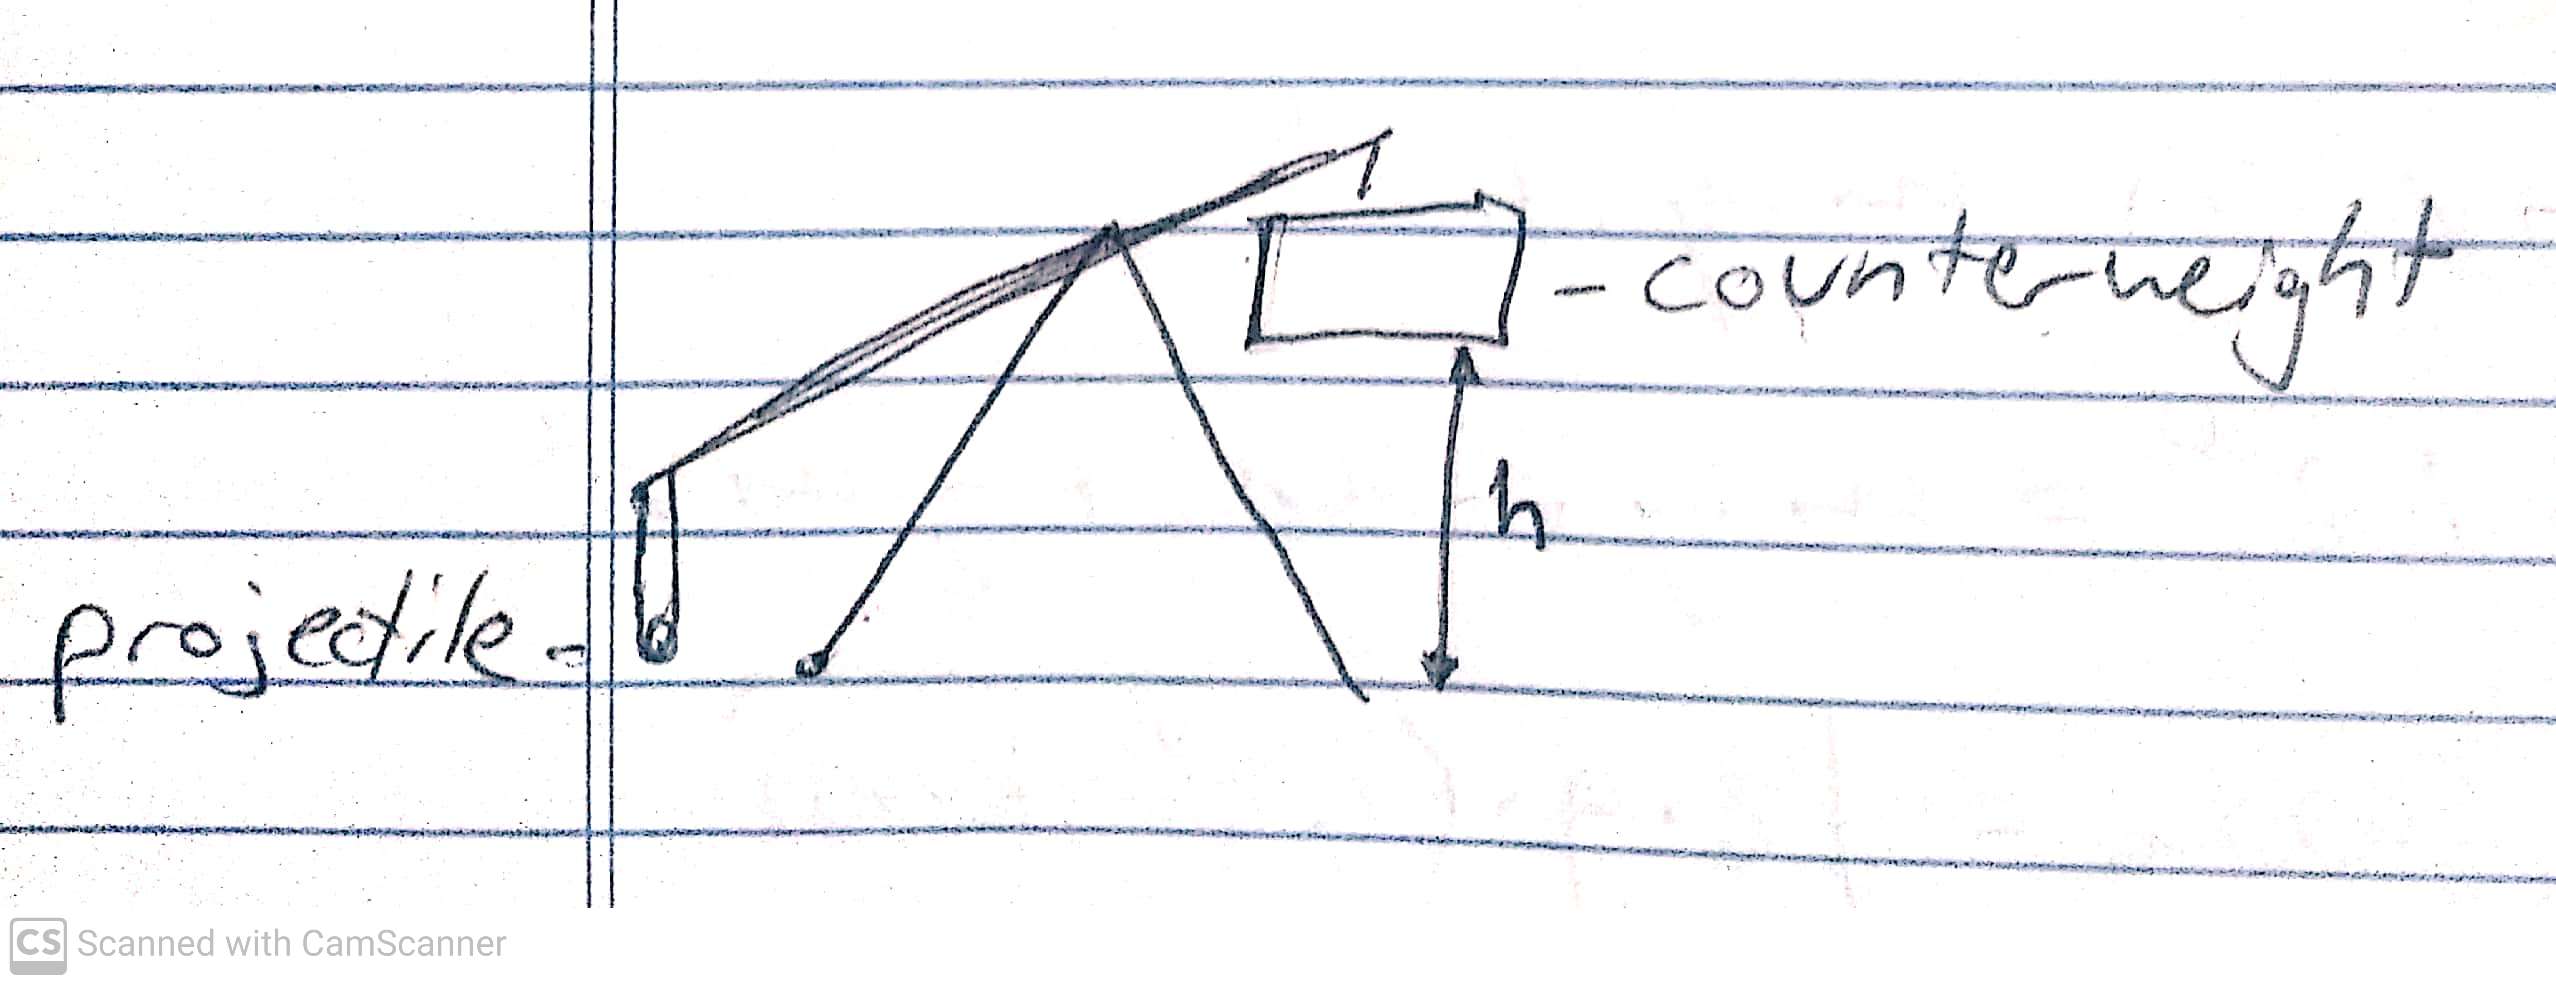 - counterweight
h
projectile -
CS Scanned with CamScanner